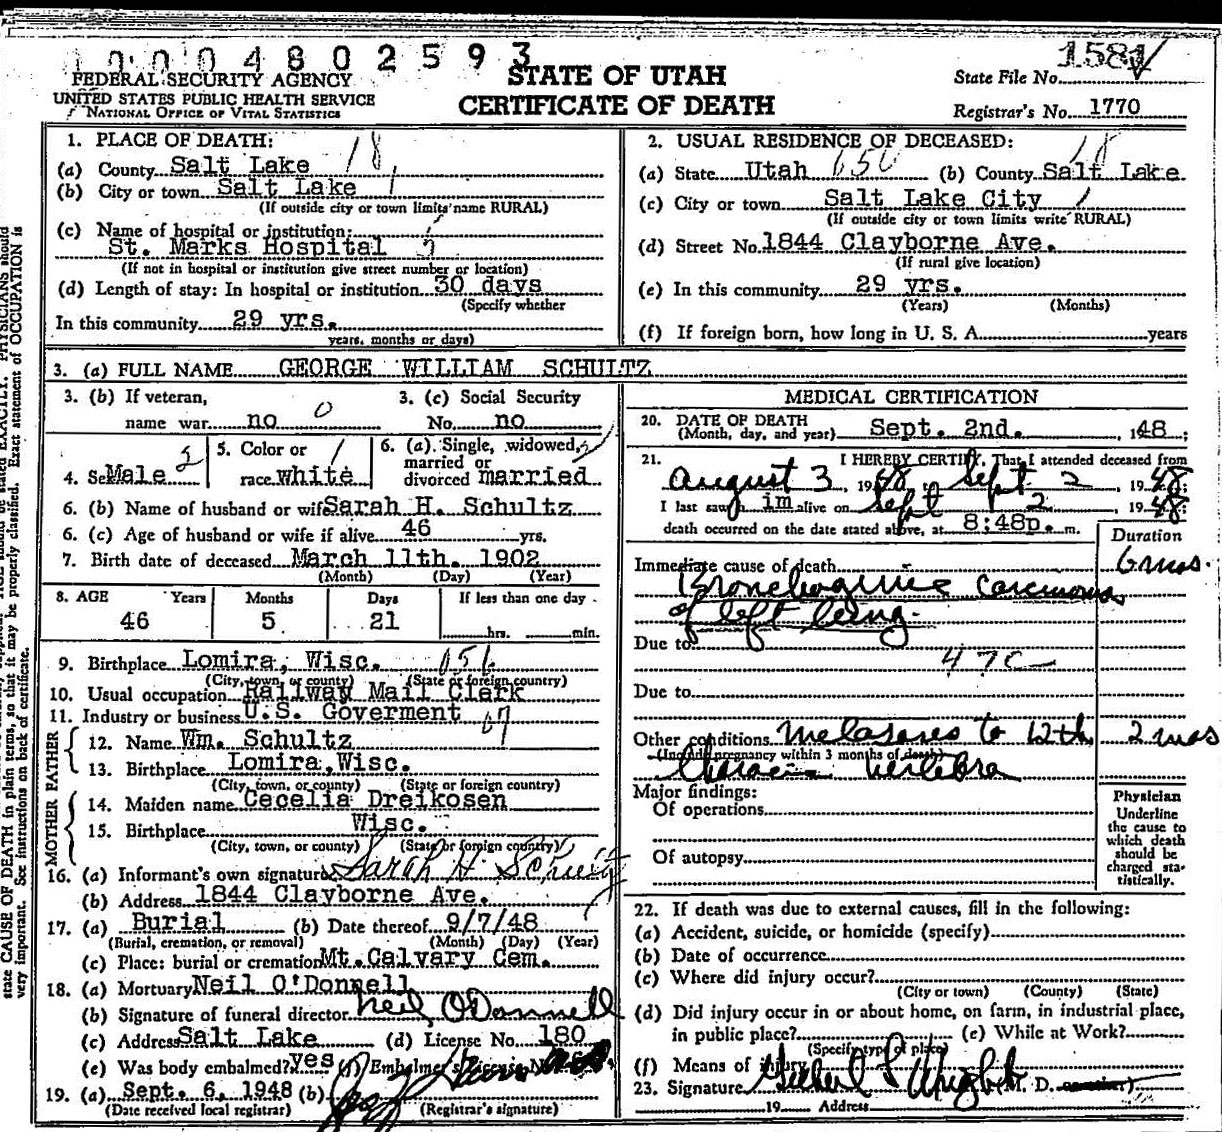 0004802593
FEDERAL SECURITY AGENCY
UNITED STATES PUBLIC HEALTH SERVICE
NATIONAL OFFICE OF VITAL STATISTICS
STATE OF UTAH
CERTIFICATE OF DEATH
1581
State File No.
Registrar's No. 1770
1. PLACE OF DEATH: 18
(a) County Salt Lake
(b) City or town Salt Lake 1
(If outside city or town limits name RURAL)
(c) Name of hospital or institution:
St. Marks Hospital
(If not in hospital or institution give street number or location)
(d) Length of stay: In hospital or institution 30 days
(Specify whether
In this community 29 yrs.
years, months or days)
2. USUAL RESIDENCE OF DECEASED: 18
(a) State Utah 050 (b) County Salt Lake
(c) City or town Salt Lake City 1
(If outside city or town limits write RURAL)
(d) Street No. 1844 Clayborne Ave.
(If rural give location)
(e) In this community 29 yrs.
(Years) (Months)
(f) If foreign born, how long in U. S. A. years
3. (a) FULL NAME GEORGE WILLIAM SCHULTZ
3. (b) If veteran,
name war no 0
3. (c) Social Security
No. no
4. Sex Male 2
5. Color or
race white 1
6. (a) Single, widowed, 2
married or
divorced married
6. (b) Name of husband or wife Sarah H. Schultz
6. (c) Age of husband or wife if alive 46 yrs.
7. Birth date of deceased March 11th. 1902
(Month) (Day) (Year)
8. AGE Years Months Days If less than one day
46 5 21 hrs. min.
9. Birthplace Lomira, Wisc. 056
(City, town, or county) (State or foreign country)
10. Usual occupation Railway Mail Clerk
11. Industry or business U.S. Goverment 67
FATHER
12. Name Wm. Schultz
13. Birthplace Lomira, Wisc.
(City, town, or county) (State or foreign country)
MOTHER
14. Maiden name Cecelia Dreikosen
15. Birthplace Wisc.
(City, town, or county) (State or foreign country)
16. (a) Informant's own signature Sarah H. Schultz
(b) Address 1844 Clayborne Ave.
17. (a) Burial (b) Date thereof 9/7/48
(Burial, cremation, or removal) (Month) (Day) (Year)
(c) Place: burial or cremation Mt. Calvary Cem.
18. (a) Mortuary Neil O'Donnell
(b) Signature of funeral director Neil O'Donnell
(c) Address Salt Lake (d) License No. 180
(e) Was body embalmed? yes (f) Embalmer's License No.
19. (a) Sept. 6, 1948 (b)
(Date received local registrar) (Registrar's signature)
MEDICAL CERTIFICATION
20. DATE OF DEATH
(Month, day, and year) Sept. 2nd. , 1948;
21. I HEREBY CERTIFY, That I attended deceased from
August 3 , 1948, to Sept 2 , 1948;
I last saw him alive on Sept 2 , 1948;
death occurred on the date stated above, at 8:48p. m.
Duration
Immediate cause of death 6 mos.
Bronchogenic carcinoma
of left lung.
Due to
47C
Due to
Other conditions metastases to 12th 2 mos
(Include pregnancy within 3 months of death)
thoracic vertebra
Major findings:
Of operations
Of autopsy
Physician
Underline
the cause to
which death
should be
charged sta-
tistically.
22. If death was due to external causes, fill in the following:
(a) Accident, suicide, or homicide (specify)
(b) Date of occurrence
(c) Where did injury occur?
(City or town) (County) (State)
(d) Did injury occur in or about home, on farm, in industrial place,
in public place? (e) While at Work?
(Specify type of place)
(f) Means of injury
23. Signature M. D.
19 Address
state CAUSE OF DEATH in plain terms, so that it may be properly classified. Exact statement of OCCUPATION is
very important. See instructions on back of certificate.